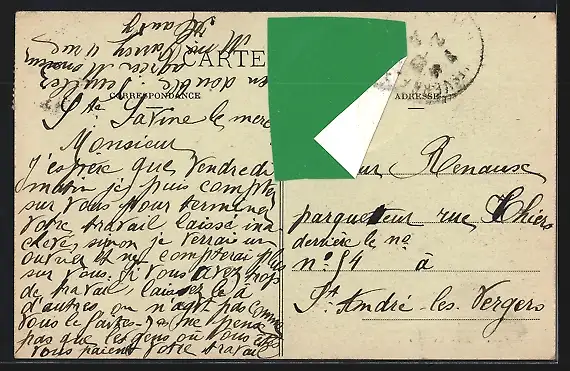 CARTE
CORRESPONDANCE
ADRESSE
Ste Savine le merc
Monsieur
J'espère que Vendredi
matin je puis compter
sur vous pour terminer
votre travail laissé ina
chevé, sinon je verrais un
ouvrier et ne compterai plus
sur vous. Si vous avez trop
de travail, laissez le à
d'autres, on n'agit pas comme
vous le faites. Je ne pense
pas que les gens où vous
vous paient votre travail
en double
agréer Monsieur
Renaux
parqueteur rue Thiers
derrière le no
no 54 à
St André les Vergers